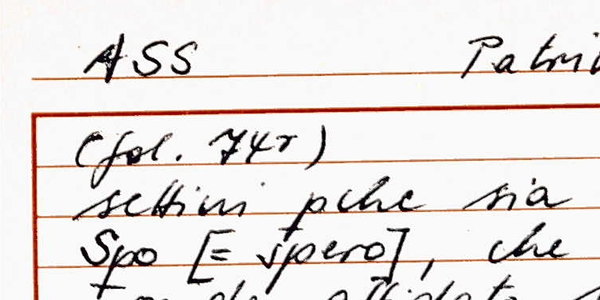 ASS
(fol. 74r)
settini pche sia
Spo [= spero], che